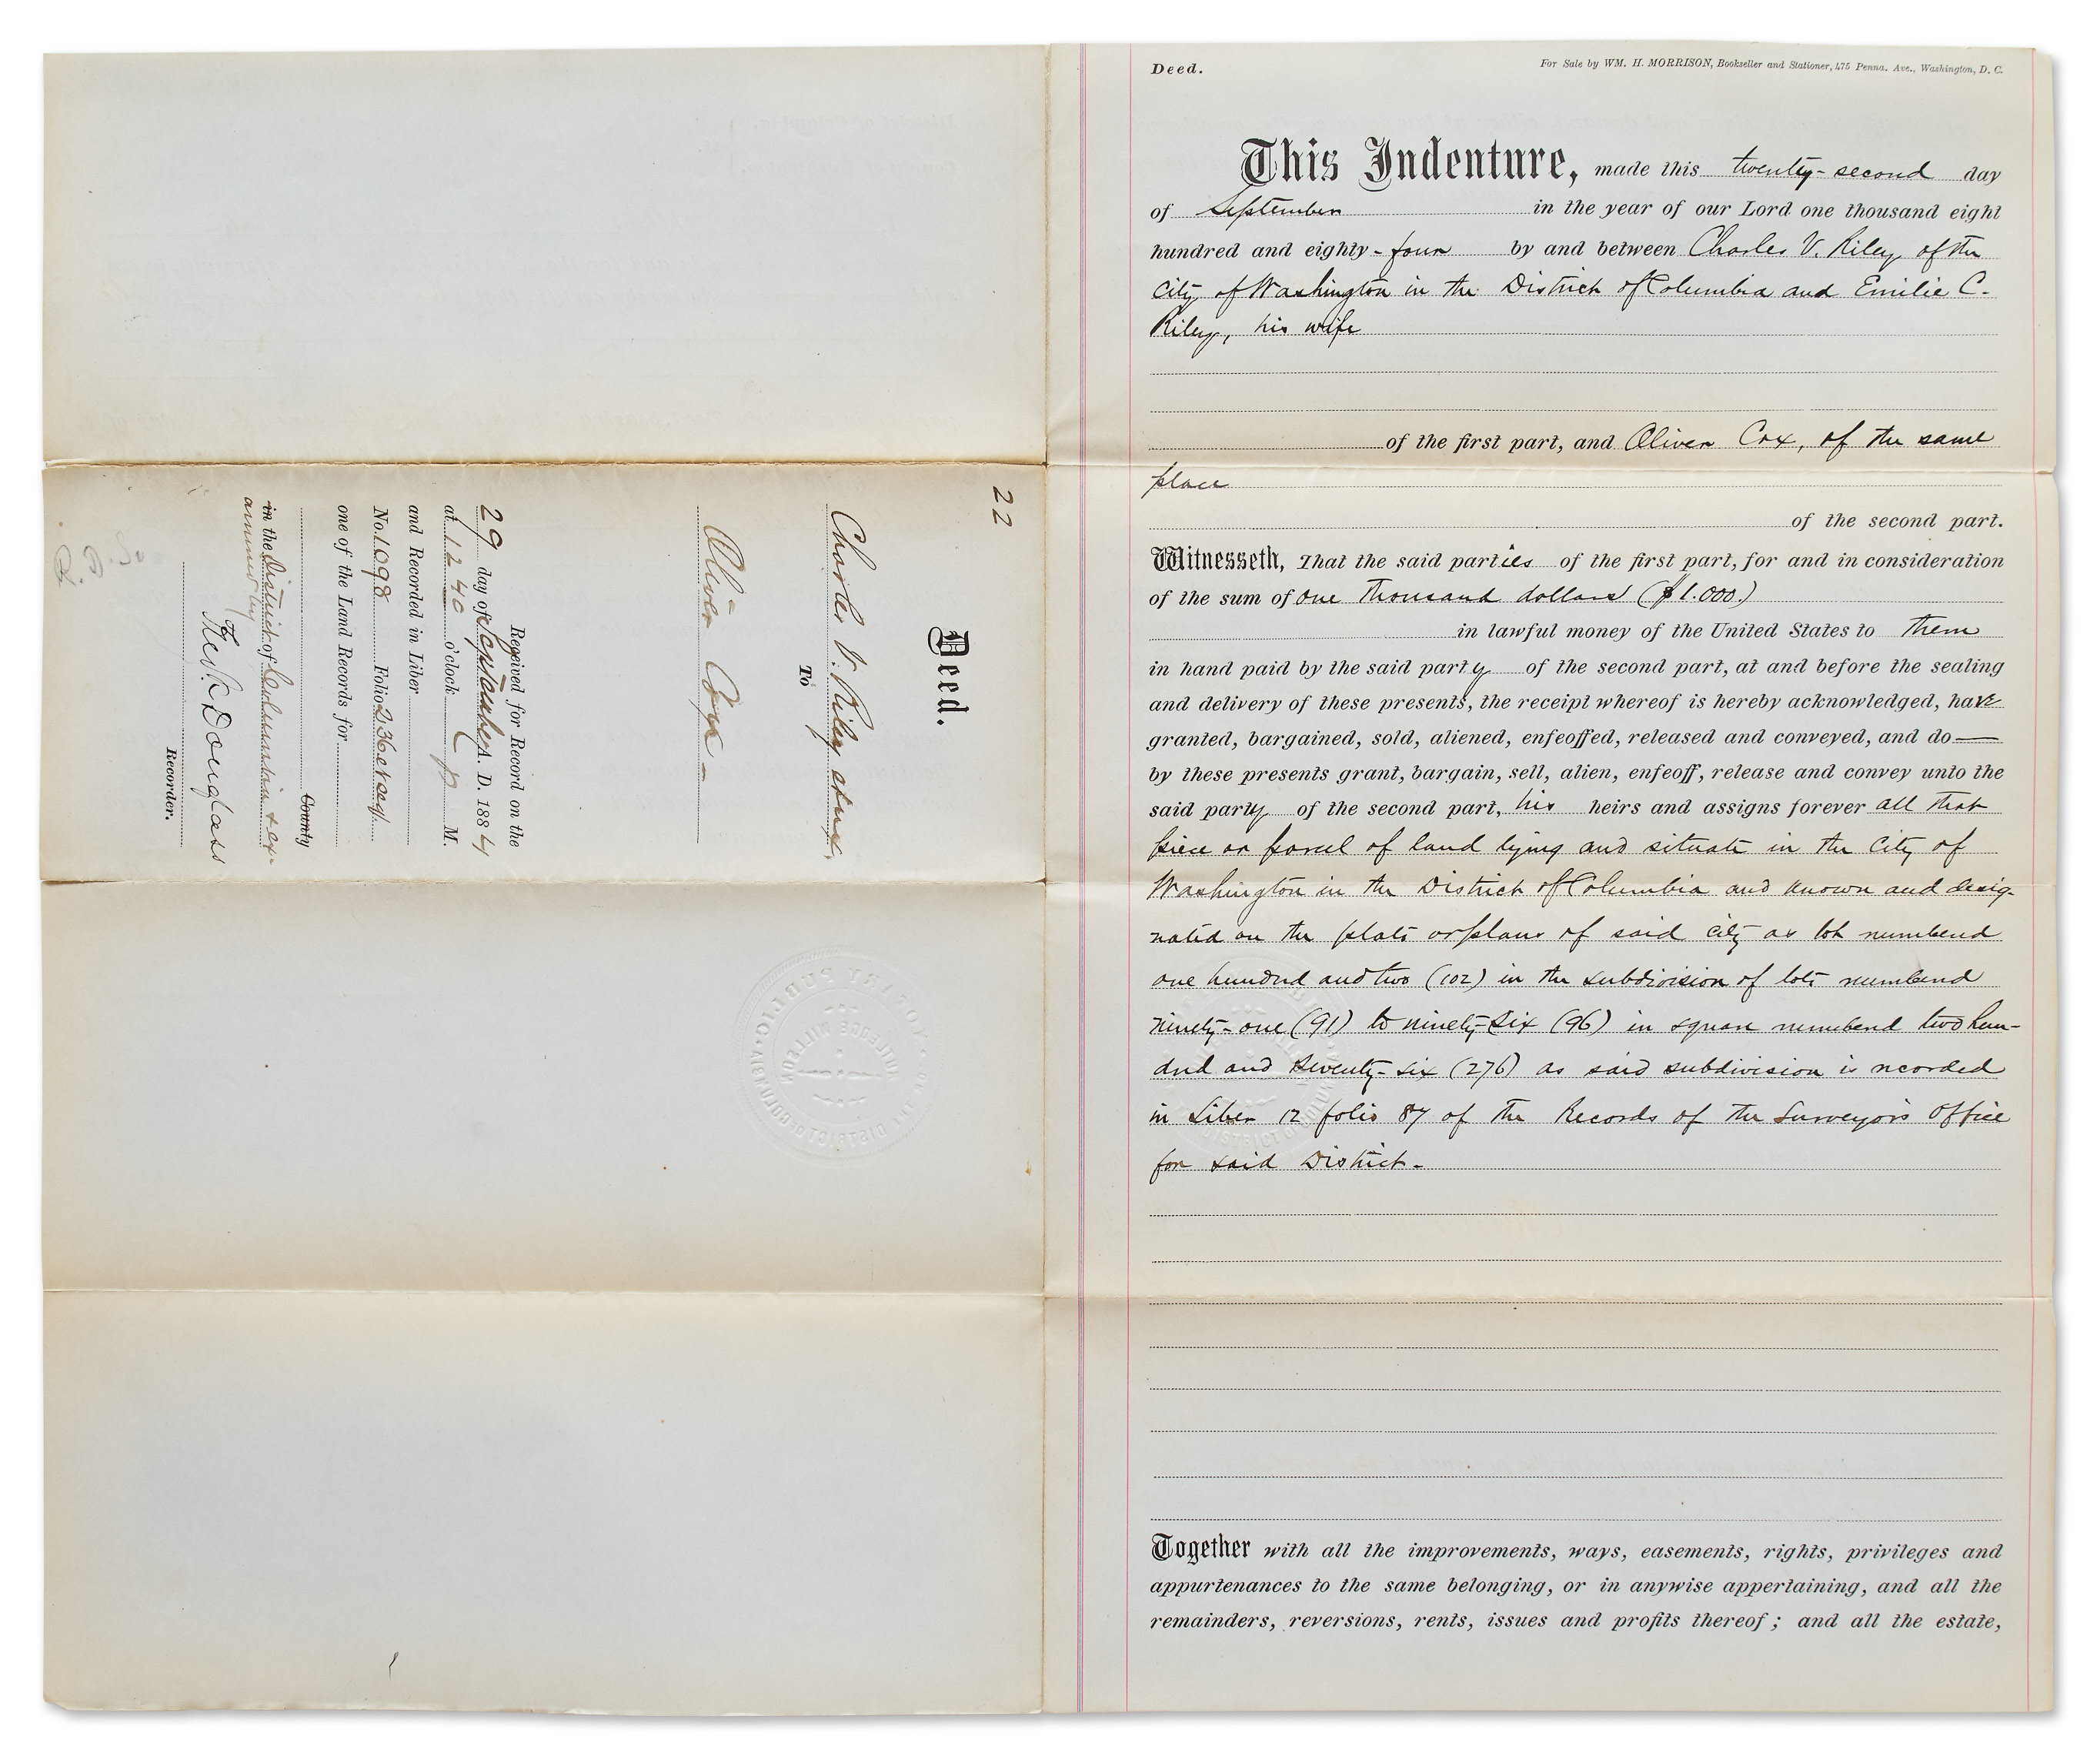 Deed.
For Sale by WM. H. MORRISON, Bookseller and Stationer, 475 Penna. Ave., Washington, D. C.
This Indenture, made this twenty-second day
of September in the year of our Lord one thousand eight
hundred and eighty-four by and between Charles V. Riley of the
City of Washington in the District of Columbia and Emilie C.
Riley, his wife
of the first part, and Oliver Cox, of the same
place
of the second part.
Witnesseth, That the said parties of the first part, for and in consideration
of the sum of One Thousand dollars ($1.000)
in lawful money of the United States to them
in hand paid by the said party of the second part, at and before the sealing
and delivery of these presents, the receipt whereof is hereby acknowledged, have
granted, bargained, sold, aliened, enfeoffed, released and conveyed, and do—
by these presents grant, bargain, sell, alien, enfeoff, release and convey unto the
said party of the second part, his heirs and assigns forever all that
piece or parcel of land lying and situate in the City of
Washington in the District of Columbia and known and desig-
nated on the plats or plans of said City as lot numbered
one hundred and two (102) in the subdivision of lots numbered
ninety-one (91) to ninety-six (96) in square numbered two hun-
dred and seventy-six (276) as said subdivision is recorded
in Liber 12 folio 87 of the Records of the Surveyor's Office
for said District.
Together with all the improvements, ways, easements, rights, privileges and
appurtenances to the same belonging, or in anywise appertaining, and all the
remainders, reversions, rents, issues and profits thereof; and all the estate,
22
Deed.
Charles V. Riley et ux,
To
Oliver Cox
Received for Record on the
29 day of September A. D. 1884
at 12 40 o'clock P M.
and Recorded in Liber
No. 1098 Folio 236 et seq
one of the Land Records for
County
in the District of Columbia & ex-
amined by
Fredk Douglass
Recorder.
NOTARY PUBLIC
DISTRICT OF COLUMBIA